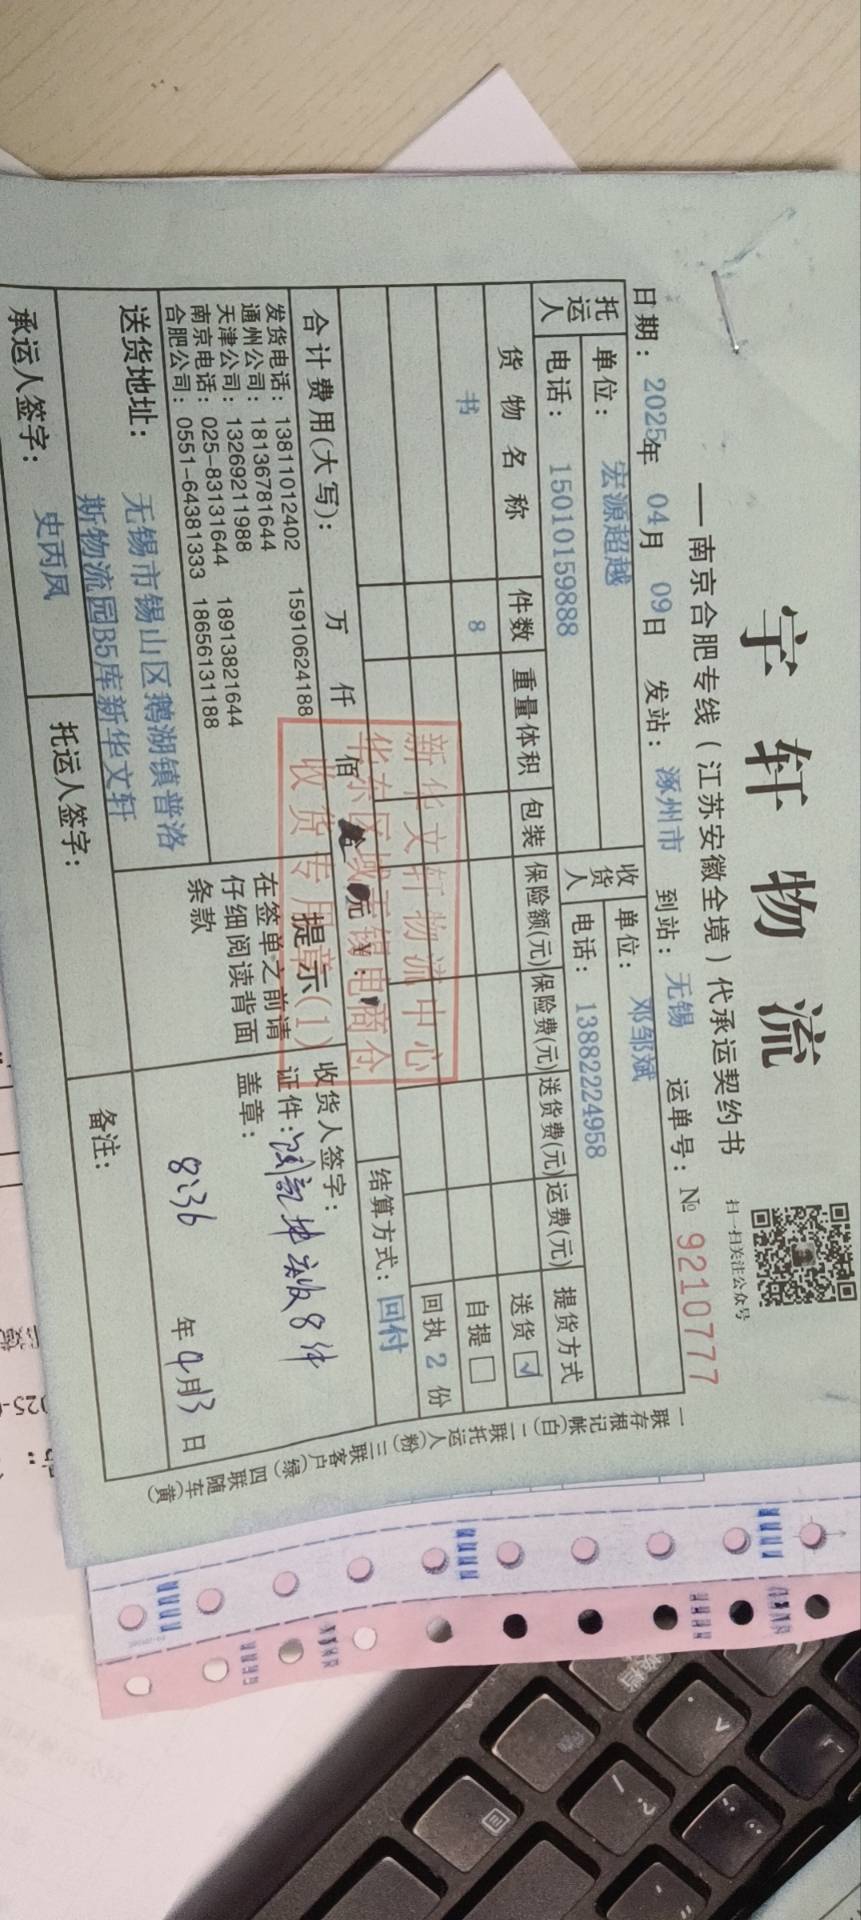 宇轩物流
—南京合肥专线(江苏安徽全境)代承运契约书
扫一扫关注公众号
日期: 2025年 04月 09日 发站: 涿州市 到站: 无锡 运单号: № 9210777
托运人 单位: 宏源超越 收货人 单位: 邓邹斌
电话: 15010159888 电话: 13882224958
货物名称 件数 重量体积 包装 保险额(元) 保险费(元) 送货费(元) 运费(元) 提货方式
书 8 送货☑
自提□
回执 2 份
新华文轩物流中心
华东区域无锡电商仓
收货专用章(1)
合计费用(大写): 万 仟 佰 拾 元 ¥: 结算方式: 回付
发货电话: 13811012402 15910624188
通州公司: 18136781644
天津公司: 13269211988
南京电话: 025-83131644 18913821644
合肥公司: 0551-64381333 18656131188
提示
在签单之前请
仔细阅读背面
条款
收货人签字:
证件: 实收8件
盖章:
8:36
年 4月13日
送货地址: 无锡市锡山区鹅湖镇普洛
斯物流园B5库新华文轩
备注:
承运人签字: 史丙凤 托运人签字:
一联存根记帐(白) 二联托运人(粉) 三联客户(绿) 四联随车(黄)